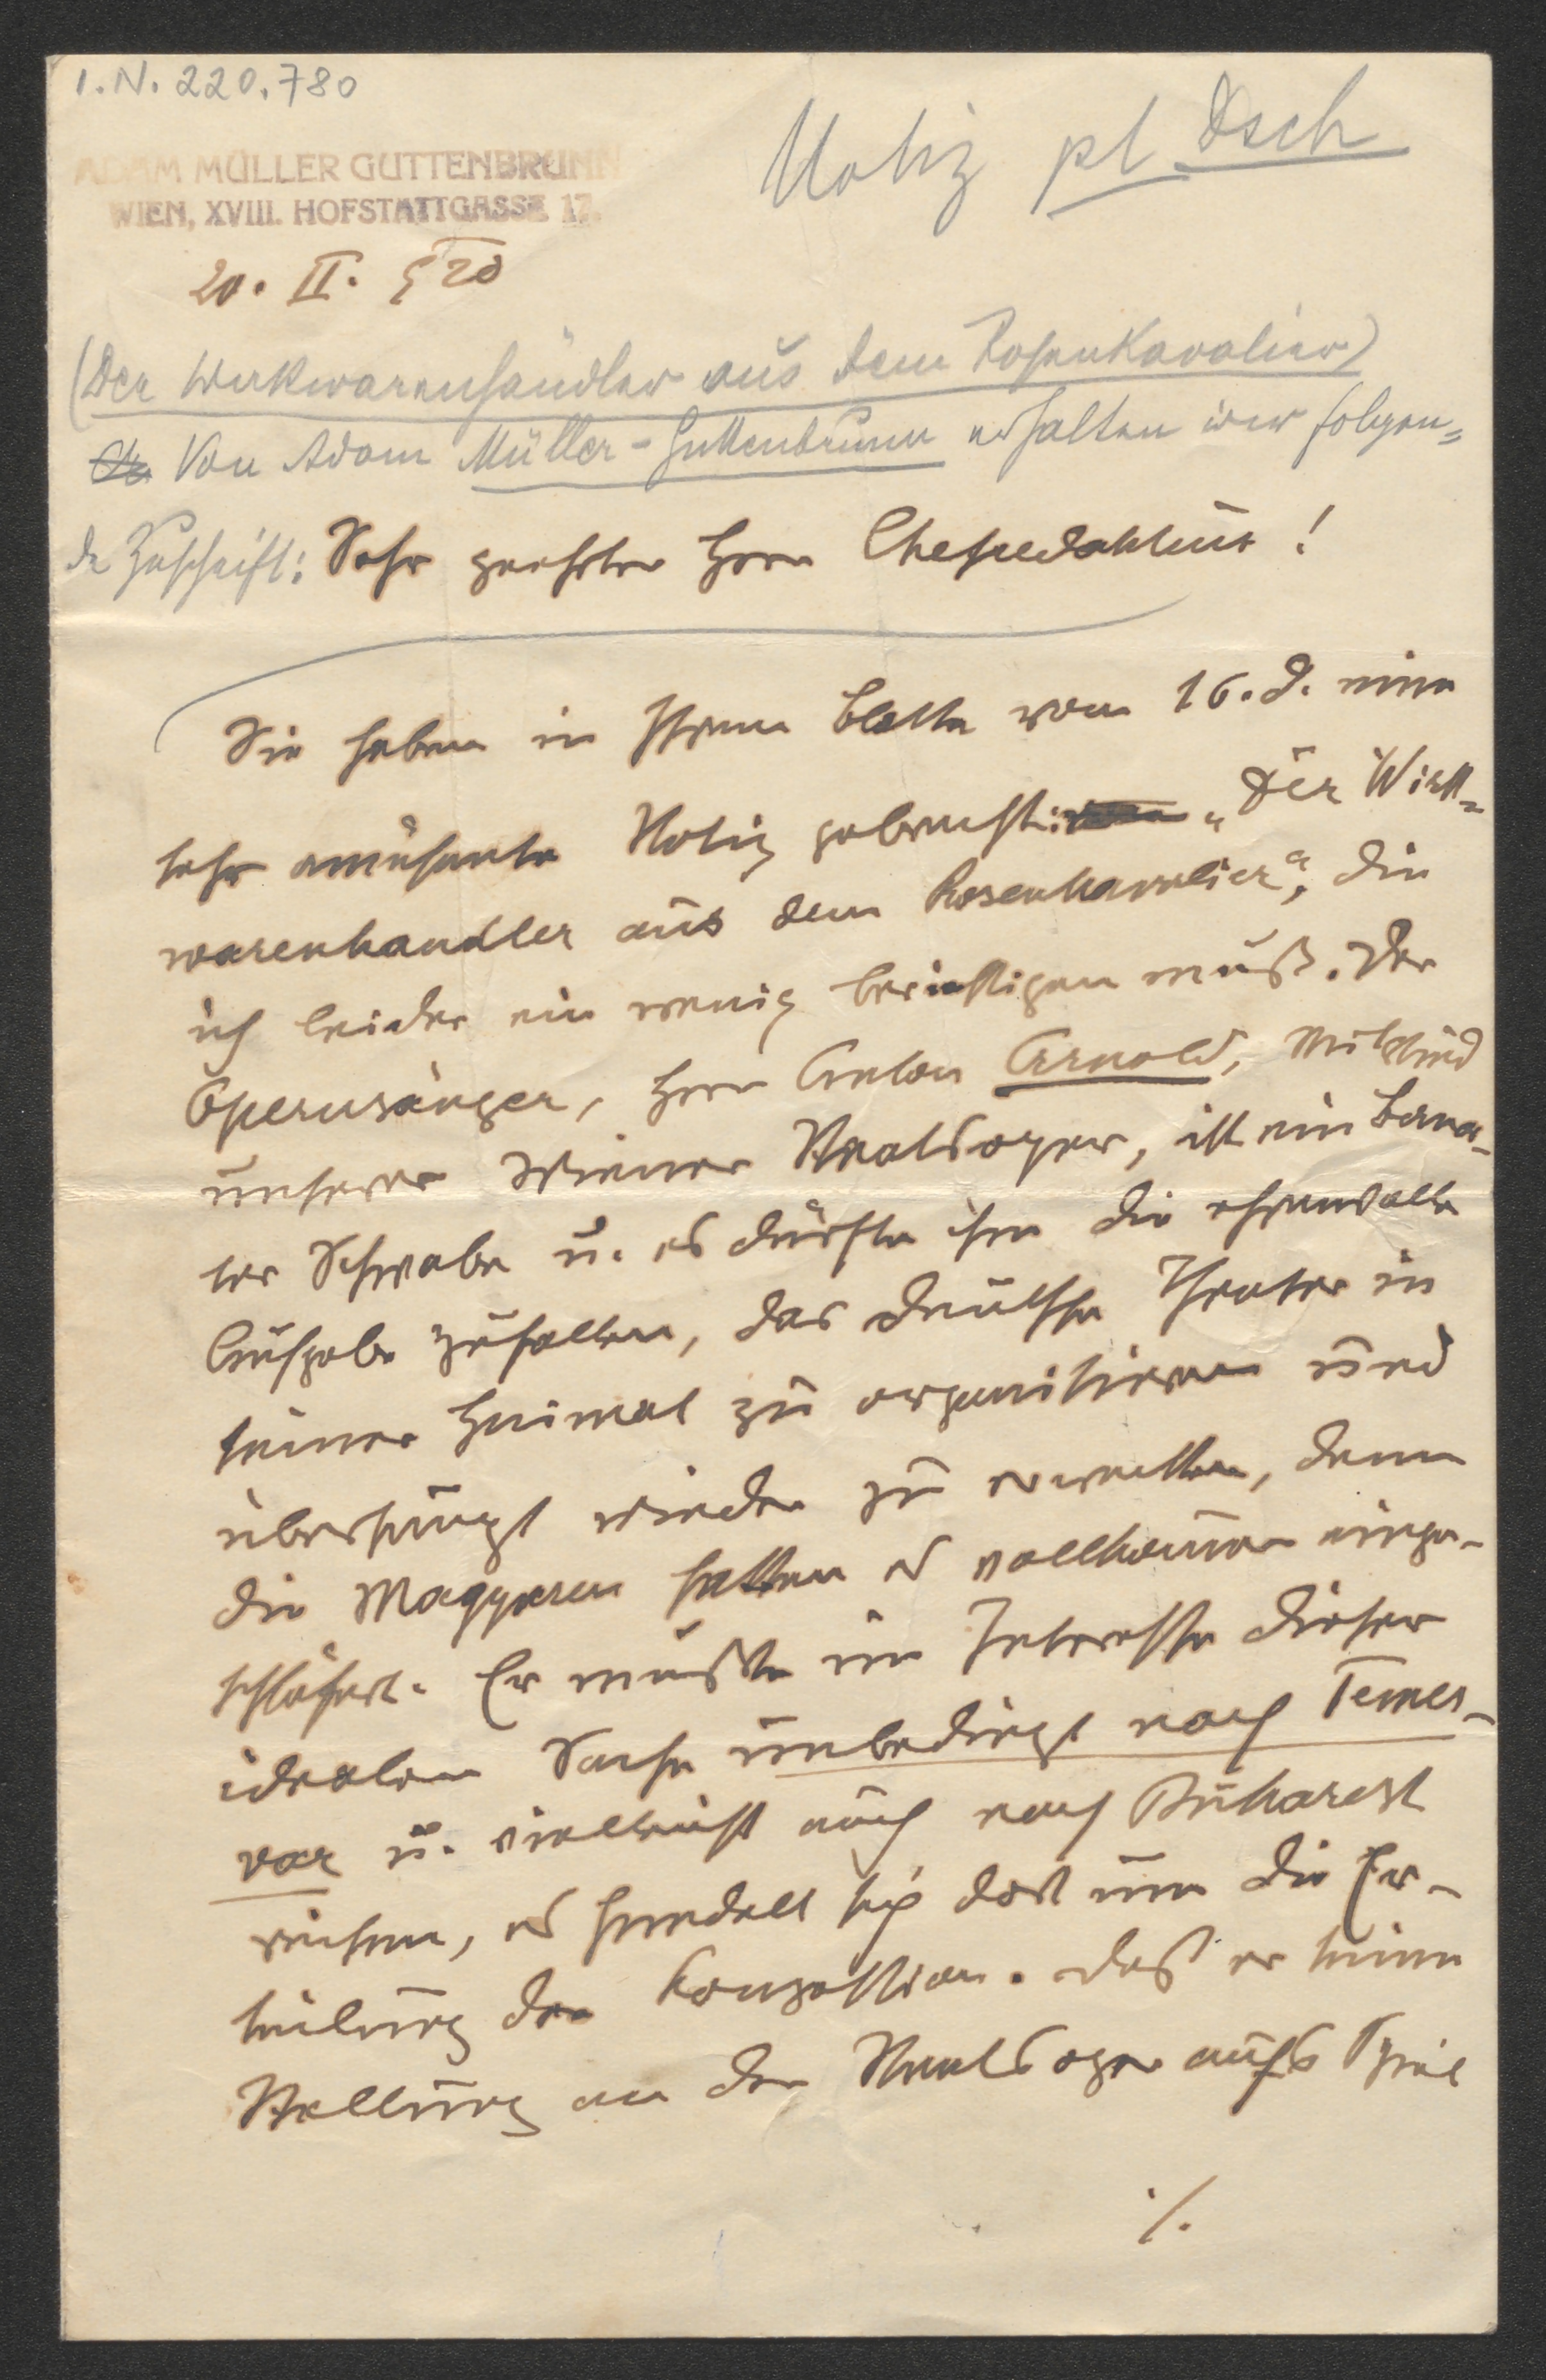 I.N. 220.780
Notiz pl Dsch
ADAM MÜLLER GUTTENBRUNN
WIEN, XVIII. HOFSTATTGASSE 17.
20. II. 920
(Der Wirkwarenhändler aus dem Rosenkavalier)
Von Adam Müller-Guttenbrunn erhalten wir folgen=
de Zuschrift: Sehr geehrter Herr Chefredakteur!
Sie haben in Ihrem Blatte vom 16. d. eine
sehr amüsante Notiz gebracht: „Der Wirk=
warenhandler aus dem Rosenkavalier“, die
ich leider ein wenig berichtigen muß. Der
Opernsänger, Herr Anton Arnold, Mitglied
unserer Wiener Staatsoper, ist ein Bana-
ter Schwabe u. es dürfte ihm die ehrenvolle
Aufgabe zufallen, das deutsche Theater in
seiner Heimat zu organisieren und
überhaupt wieder zu erwecken, denn
die Magyaren hatten es vollkommen einge-
schläfert. Er mußte im Interesse dieser
idealen Sache unbedingt nach Temes-
var u. vielleicht auch nach Bukarest
reisen, es handelt sich dort um die Er-
teilung der Konzession. Daß er seine
Stellung an der Staatsoper aufs Spiel
./.